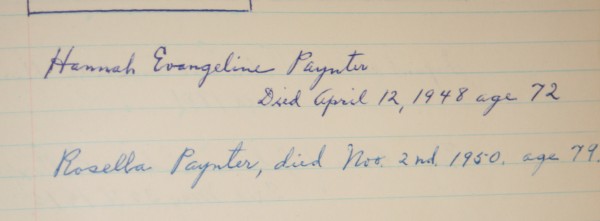 Hannah Evangeline Paynter
Died April 12, 1948 age 72
Rosella Paynter, died Nov. 2nd. 1950. age 79.